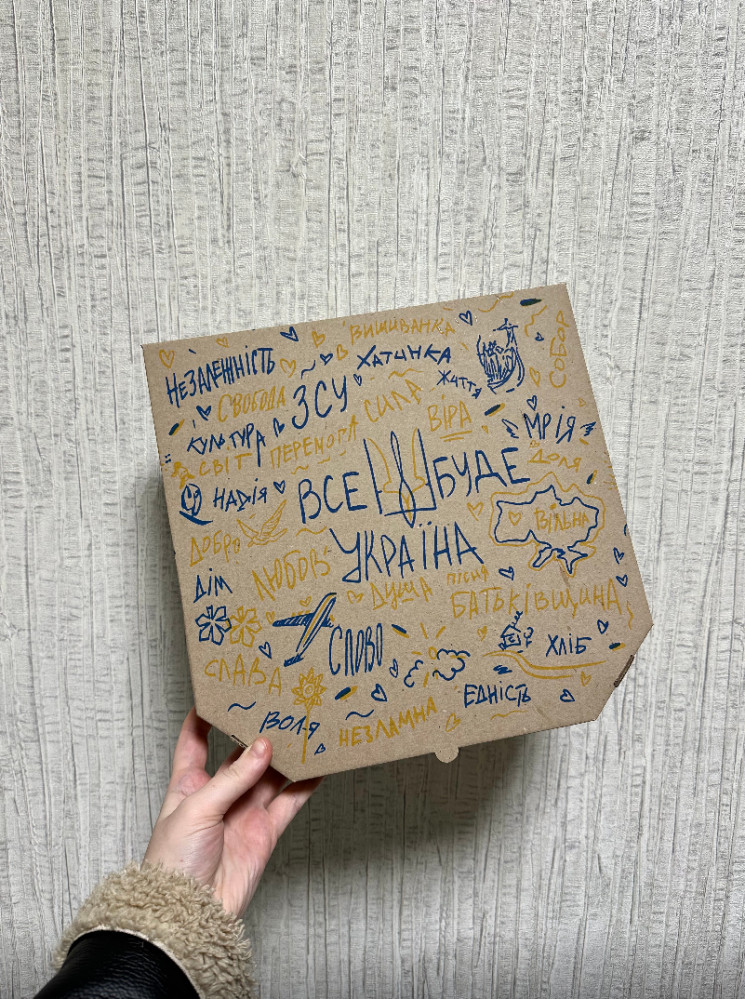 ВИШИВАНКА
НЕЗАЛЕЖНІСТЬ
ХАТИНКА
СОБОР
СВОБОДА
ЗСУ
СИЛА
ЖИТТЯ
КУЛЬТУРА
ПЕРЕМОГА
ВІРА
МРІЯ
СВІТ
ДОЛЯ
НАДІЯ
ВСЕ БУДЕ
УКРАЇНА
ВІЛЬНА
ДОБРО
ЛЮБОВ
ДІМ
ДУША
ПІСНЯ
БАТЬКІВЩИНА
СЛОВО
ХЛІБ
СЛАВА
ЄДНІСТЬ
ВОЛЯ
НЕЗЛАМНА